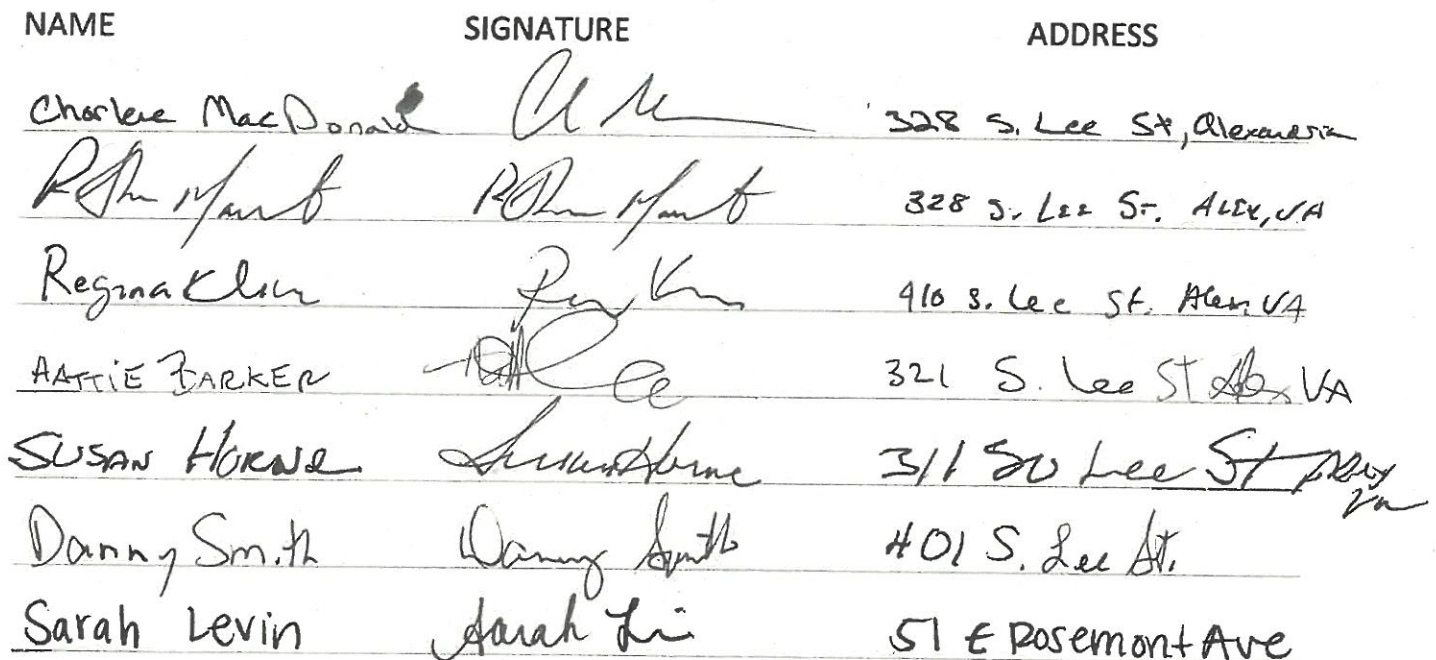 NAME SIGNATURE ADDRESS
Charlene MacDonald 328 S. Lee St, Alexandria
328 S. Lee St. Alex, VA
Regina 410 S. Lee St. Alex, VA
HATTIE BARKER 321 S. Lee ST Alex VA
SUSAN HORNE Susan Horne 311 SO Lee St Alex Va
Danny Smith Danny Smith 401 S. Lee St.
Sarah Levin Sarah 51 E Rosemont Ave